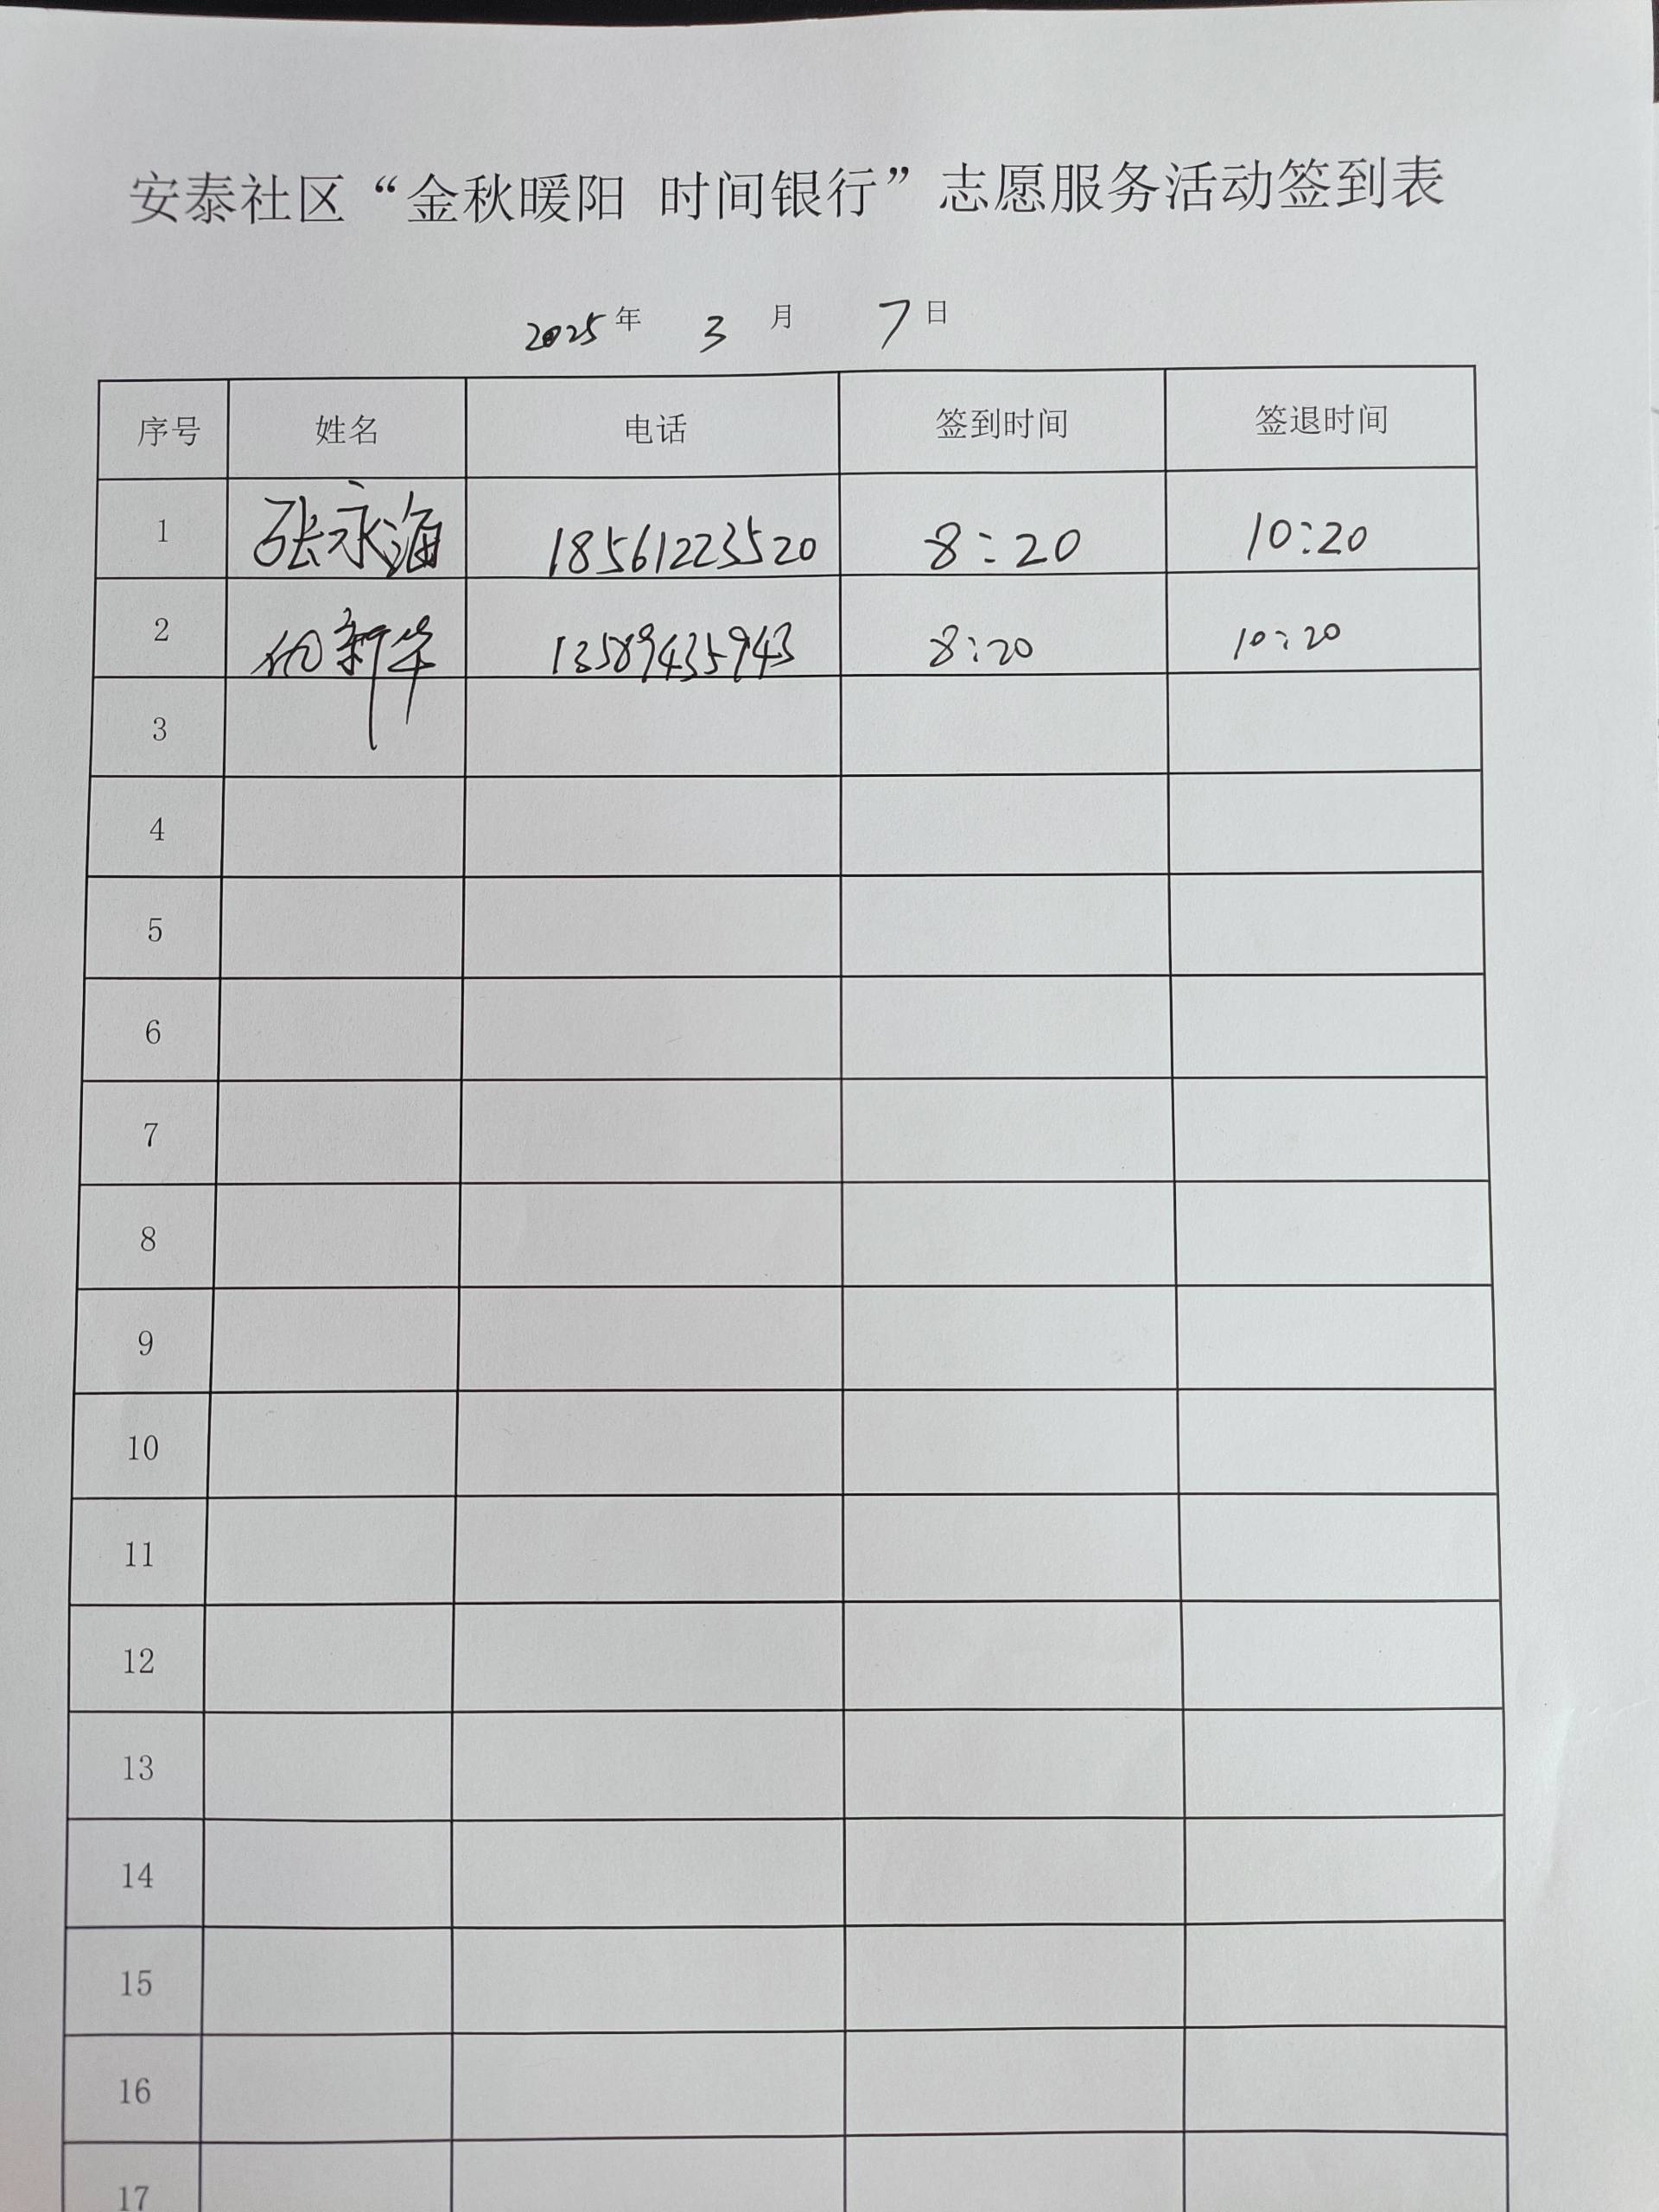 安泰社区“金秋暖阳 时间银行”志愿服务活动签到表
2025年 3 月 7日
序号 姓名 电话 签到时间 签退时间
1 张永海 18561223520 8:20 10:20
2 新华 13589435943 8:20 10:20
3
4
5
6
7
8
9
10
11
12
13
14
15
16
17